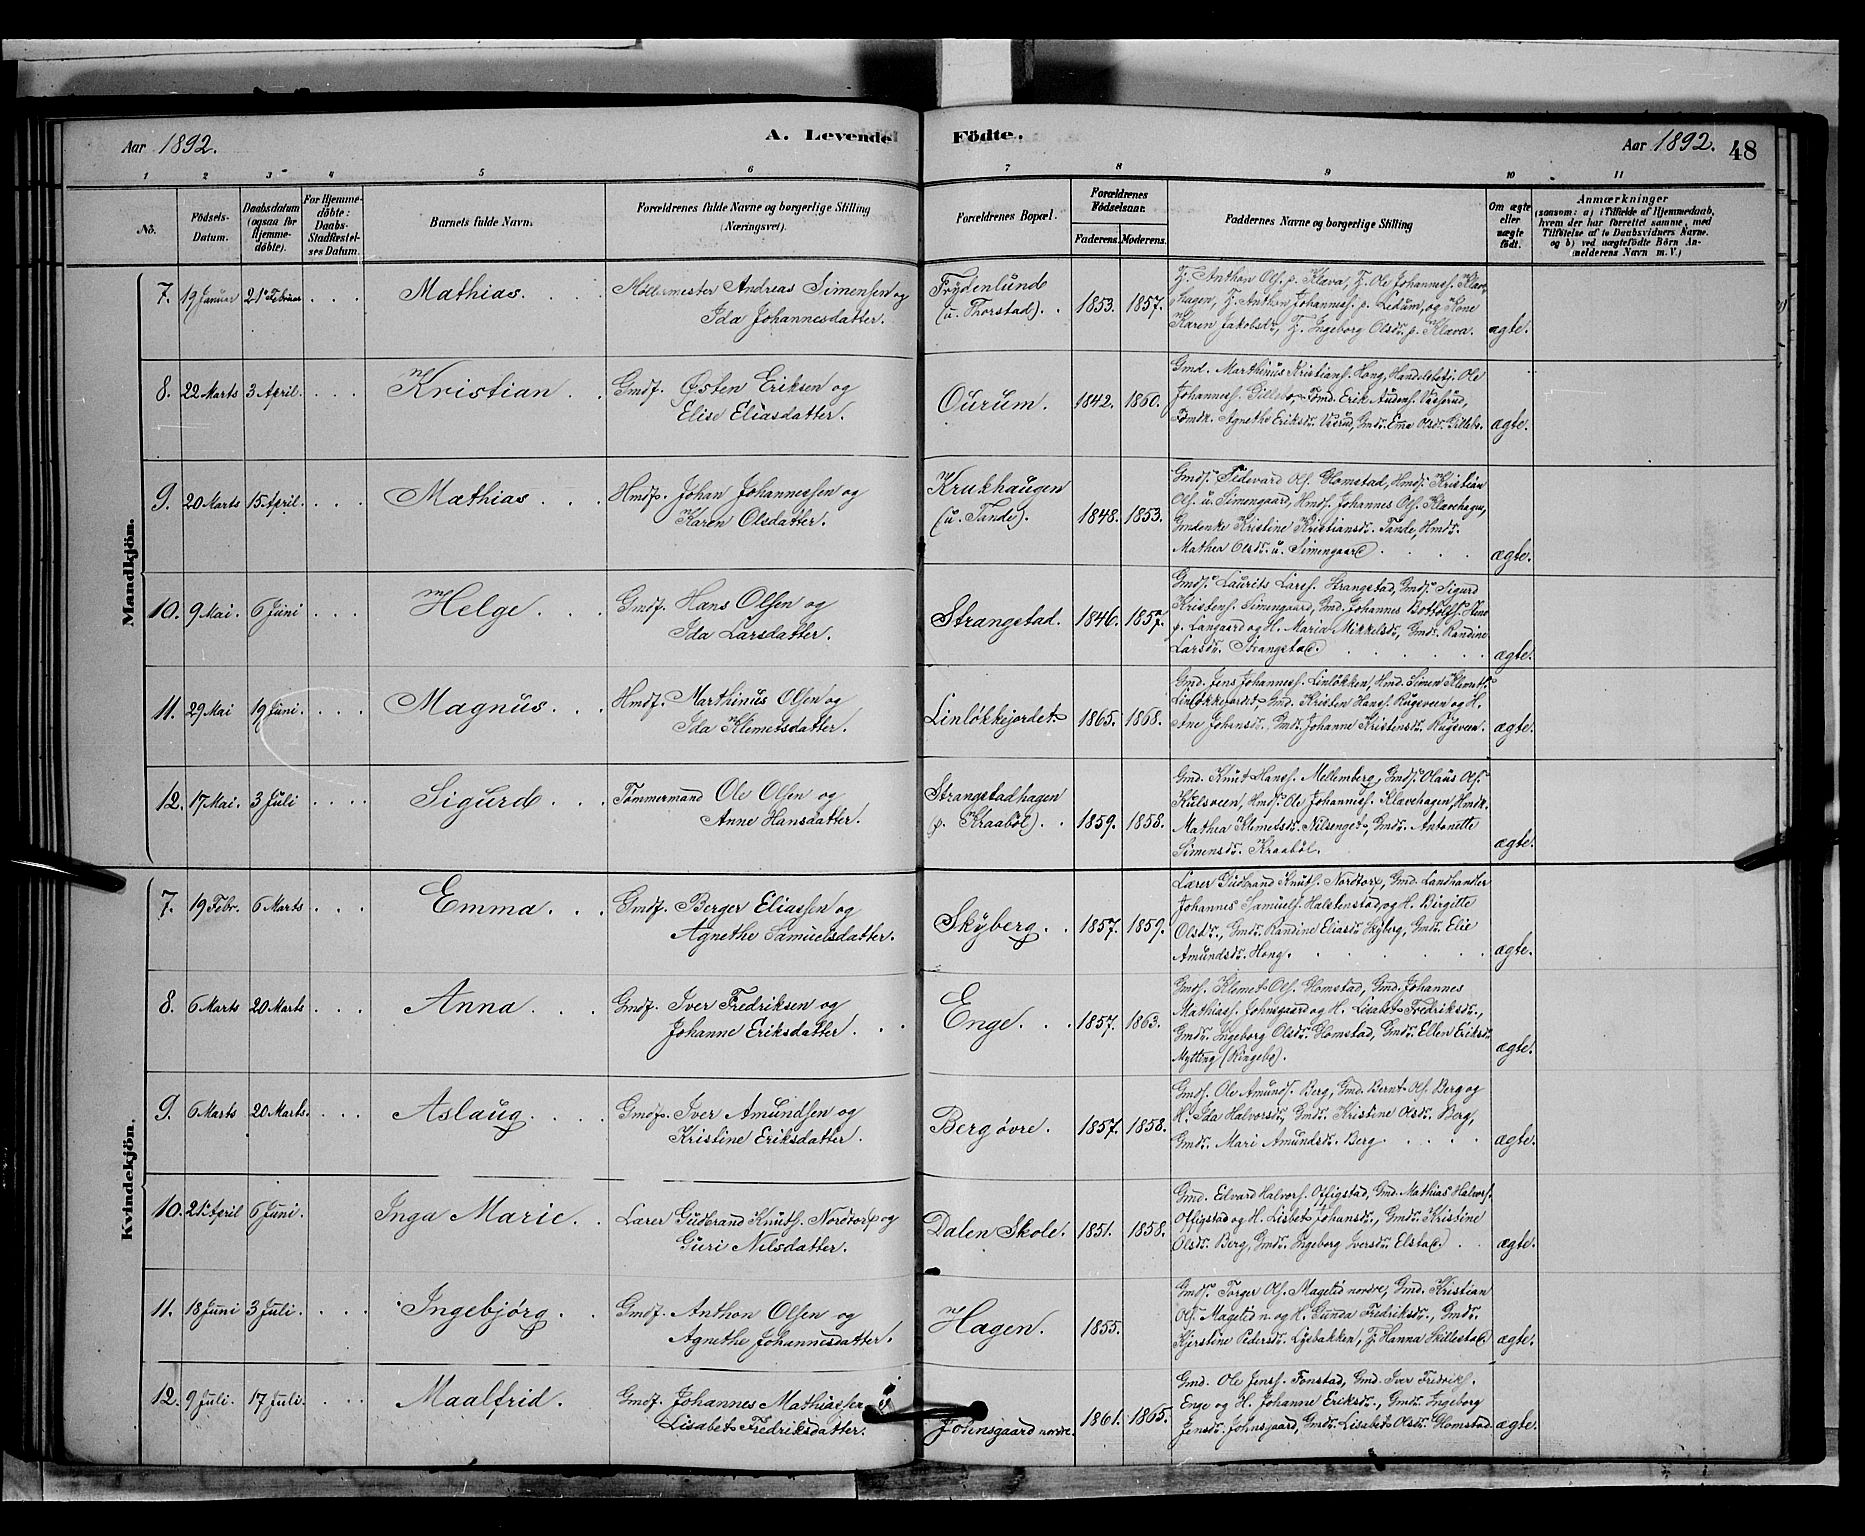 Aar 1892.
A. Levende
Födte.
Aar 1892.
48
1 2 3 4 5 6 7 8 9 10 11
No.
Födsels-
Datum.
Daabsdatum
(ogsaa for
Hjemme-
döbte).
For Hjemme-
döbte:
Daabs-
Stadfæstel-
ses Datum.
Barnets fulde Navn.
Forældrenes fulde Navne og borgerlige Stilling
(Næringsvei).
Forældrenes Bopæl.
Forældrenes
Födselsaar.
Faderens. Moderens.
Faddernes Navne og borgerlige Stilling
Om ægte
eller
uægte
födt.
Anmærkninger
(saasom: a) i Tilfælde af Hjemmedaab,
hvem der har forrettet samme, med
Tilföielse af to Daabsvidners Navne.
og b) ved uægtefödte Börn An-
melderens Navn m. V.)
Mandkjön.
7. 19 Januar 21 Februar Mathias.
Möllermester Andreas Simensen og
Ida Johannesdatter.
Frydenlund
(u. Thorstad). 1853. 1857.
F. Anthon Ols. p. Klæva, F. Ole Johanness. Klæv-
hagen, F. Anthon Johanness. p. Lidum, og Kone
Karen Jakobsdr, F. Ingeborg Olsdr. p. Klæva. ægte.
8. 22 Marts 3 April. Kristian.
Gmdf. Østen Eriksen og
Elise Eliasdatter.
Ourum. 1842. 1860.
Gmd. Marthinus Kristians. Hong, Handelsbetj. Ole
Johanness. Gillebo, Fdmd. Erik Audens. Vasrud,
Fdmdk. Agnethe Eriksdr. Vasrud, Gmdr. Ema Olsdr. Gillebo. ægte.
9. 20 Marts 15 April. Mathias
Hmdf. Johan Johannessen og
Karen Olsdatter.
Krukhaugen
(u. Tande). 1848. 1853.
Gmds. Sidevard Ols. Glomstad, Hmds. Kristian
Ols. u. Simengaard, Hmds. Johannes Ols. Klævehagen,
Gmdenke Kristine Kristiansdr. Tande, Hmdr.
Mathea Olsdr. u. Simengaard ægte.
10. 9 Mai. 6 Juni Helge.
Gmdf. Hans Olsen og
Ida Larsdatter.
Strangstad. 1846. 1857.
Gmds. Laurits Larss. Strangstad, Gmds. Sigurd
Kristens. Simengaard, Gmd. Johannes Bottolfs.
p. Langaard og H. Maria Mikkelsdr, Gmdr. Randine
Larsdr. Strangstad. ægte.
11. 29 Mai 19 Juni. Magnus.
Hmdf. Marthinus Olsen og
Ida Klemetsdatter.
Linlökkejordet 1865. 1868.
Gmd. Jens Johanness. Linlökken, Hmd. Simen Klemets.
Linlökkejordet, Gmd. Kristen Hans. Rugsveen og H.
Ane Johansdr., Gmdr. Johanne Kristensdr. Rugsveen. ægte.
12. 17 Mai. 3 Juli Sigurd
Tømmermand Ole Olsen og
Anne Hansdatter.
Strangstadhagen
(p. Kraaböl). 1859. 1858.
Gmd. Knut Hans. Mellemberg, Gmds. Olaus Ols.
Kulsveen, Hmds. Ole Johanness. Klævehagen, Hmdk.
Mathea Klemetsdr. Nilsenget, Gmdr. Antonette
Simensdr. Kraaböl. ægte.
Kvindekjön.
7. 19 Febr. 6 Marts Emma.
Gmdf. Berger Eliassen og
Agnethe Samuelsdatter.
Skyberg. 1857. 1859.
Lærer Gudbrand Knuts. Nordtorp, Gmd. Landhandler
Johannes Samuels. Halstenstad og H. Birgitte
Olsdr., Gmdr. Randine Eliasdr Skyberg, Gmdr. Elie
Amundsdr. Hong. ægte.
8. 6 Marts 20 Marts Anna
Gmdf. Iver Fredriksen og
Johanne Eriksdatter.
Enge. 1857. 1863.
Gmds. Klemet Ols. Glomstad, Gmd. Johannes
Mathiass. Johnsgaard og H. Lisabet Fredriksdr.,
Gmdr. Ingeborg Olsdr. Glomstad, Gmdr. Ellen Eriksdr
Mytting (Ringebø). ægte.
9. 6 Marts 20 Marts. Aslaug.
Gmdf. Iver Amundsen og
Kristine Eriksdatter.
Berg övre. 1857. 1858.
Gmds. Ole Amunds. Berg, Gmd. Bernt Ols. Berg og
H. Ida Halvorsdr, Gmdr. Kristine Olsdr. Berg,
Gmdr. Mari Amundsdr. Berg ægte.
10. 21 April 6 Juni. Inga Marie.
Lærer Gudbrand Knuts. Nordtorp og
Guri Nilsdatter.
Dalen Skole. 1851. 1858.
Gmd. Edvard Halvors. Offigstad, Gmd. Mathias Halvors.
Offigstad og H. Lisbet Johansdr., Gmdr. Kristine
Olsdr. Berg, Gmdr. Ingeborg Iversdr. Elstad. ægte.
11. 18 Juni 3 Juli. Ingebjørg.
Gmdf. Anthon Olsen og
Agnethe Johannesdatter.
Hagen. 1855.
Gmds. Torger Ols. Magelid nordre, Gmd. Kristian
Ols. Magelid n. og H. Gunda Fredriksdr., Gmdr.
Kjerstine Pedersdr. Lysbakken, F. Hanna Skillestad ægte.
12. 9 Juli. 17 Juli. Maalfrid.
Gmdf. Johannes Mathiassen og
Lisabet Fredriksdatter.
Johnsgaard nordre. 1861. 1865.
Gmd. Ole Jenss. Fonstad, Gmd. Iver Fredriks.
Enge og H. Johanne Eriksdr., Gmdr. Ingeborg
Jensdr. Johnsgaard, Gmdr. Lisabet Olsdr. Glomstad. ægte.